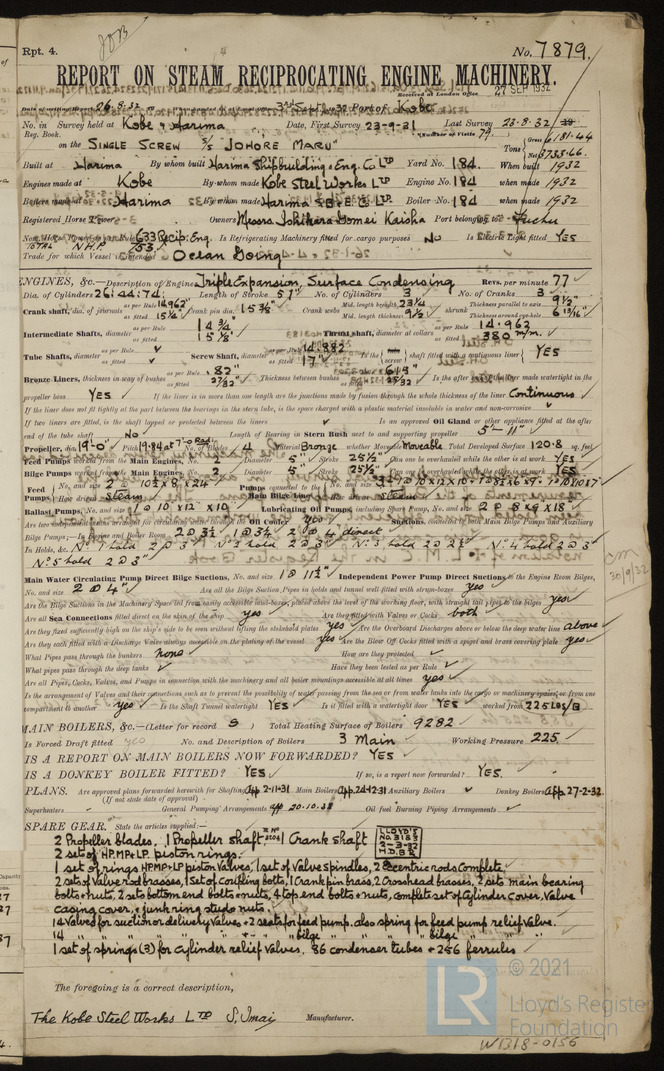 Rpt. 4.
No. 7879.
REPORT ON STEAM RECIPROCATING ENGINE MACHINERY.
Received at London Office 27 SEP 1932
26.8.32 Port of Kobe
No. in Survey held at Kobe & Harima Date, First Survey 23-9-31 Last Survey 23.8.32
Reg. Book. Number of Visits 79
on the SINGLE SCREW S/S "JOHORE MARU" Tons Gross 6181.44
Net 3733.66
Built at Harima By whom built Harima Shipbuilding & Eng. Co Ltd Yard No. 184 When built 1932
Engines made at Kobe By whom made Kobe Steel Works Ltd Engine No. 184 when made 1932
Boilers made at Harima By whom made Harima S.B. & E. Co Ltd Boiler No. 184 when made 1932
Registered Horse Power Owners Messrs Ishihara Gomei Kaisha Port belonging to Fuchu
633 Recip: Eng. Is Refrigerating Machinery fitted for cargo purposes No Is Electric Light fitted YES
Trade for which Vessel is intended Ocean Going
ENGINES, &c.—Description of Engines Triple Expansion, Surface Condensing Revs. per minute 77
Dia. of Cylinders 26: 44: 74: Length of Stroke 51" No. of Cylinders 3 No. of Cranks 3
Crank shaft, dia. of journals as per Rule 14.962 as fitted 15¼" Crank pin dia. 15¾" Crank webs Mid. length breadth 23¼ Mid. length thickness 9½ Thickness parallel to axis 9½" Thickness around eye-hole 6 13/16"
Intermediate Shafts, diameter as per Rule 14¾ as fitted 15⅛" Thrust shaft, diameter at collars as per Rule 14.962 as fitted 380 m/m.
Tube Shafts, diameter as per Rule as fitted Screw Shaft, diameter as fitted 17" Is the shaft fitted with a continuous liner YES
Bronze Liners, thickness in way of bushes as per Rule .82" as fitted 27/32" Thickness between bushes as per Rule .615" as fitted 25/32" Is the after end of the liner made watertight in the
propeller boss YES If the liner is in more than one length are the junctions made by fusion through the whole thickness of the liner Continuous
If the liner does not fit tightly at the part between the bearings in the stern tube, is the space charged with a plastic material insoluble in water and non-corrosive
If two liners are fitted, is the shaft lapped or protected between the liners Is an approved Oil Gland or other appliance fitted at the after
end of the tube shaft No Length of Bearing in Stern Bush next to and supporting propeller 5'-11"
Propeller, dia. 19'-0" Pitch 19.84 at 7'-0 Rad. No. of Blades 4 Material Bronze whether Moveable Moveable Total Developed Surface 120.8 sq. feet
Feed Pumps worked from Main Engines, No. 2 Diameter 5" Stroke 25½" Can one be overhauled while the other is at work YES
Bilge Pumps worked from Main Engines, No. 2 Diameter 5" Stroke 25½" Can one be overhauled while the other is at work YES
Feed Pumps No. and size 2 @ 10½ x 8 x 24 How driven Steam Pumps connected to the Main Bilge Line How driven steam
Ballast Pumps, No. and size 1 @ 10 x 12 x 10 Lubricating Oil Pumps, including Spare Pump, No. and size 2 @ 8 x 9 x 18
Oil Cooler yes Suctions, connected to both Main Bilge Pumps and Auxiliary
Bilge Pumps;—In Engine and Boiler Room 2 @ 3½, 1 @ 3½ 2 @ 4 direct
In Holds, &c. No 1 hold 2 @ 3" No 2 hold 2 @ 3" No 3 hold 2 @ 3½" No 4 hold 2 @ 3"
No 5 hold 2 @ 3"
cm 30/9/32
Main Water Circulating Pump Direct Bilge Suctions, No. and size 1 @ 11½" Independent Power Pump Direct Suctions to the Engine Room Bilges,
No. and size 2 @ 4" Are all the Bilge Suction Pipes in holds and tunnel well fitted with strum-boxes yes
Are the Bilge Suctions in the Machinery Space led from easily accessible mud-boxes, placed above the level of the working floor, with straight tail pipes to the bilges yes
Are all Sea Connections fitted direct on the skin of the ship yes Are they fitted with Valves or Cocks both
Are they fixed sufficiently high on the ship's side to be seen without lifting the stokehold plates yes Are the Overboard Discharges above or below the deep water line above
Are they each fitted with a Discharge Valve always accessible on the plating of the vessel yes Are the Blow Off Cocks fitted with a spigot and brass covering plate yes
What Pipes pass through the bunkers none How are they protected
What pipes pass through the deep tanks Have they been tested as per Rule
Are all Pipes, Cocks, Valves, and Pumps in connection with the machinery and all boiler mountings accessible at all times yes
Is the arrangement of Valves and their connections such as to prevent the possibility of water passing from the sea or from water tanks into the cargo or machinery spaces, or from one
compartment to another yes Is the Shaft Tunnel watertight YES Is it fitted with a watertight door YES worked from
MAIN BOILERS, &c.—(Letter for record S) Total Heating Surface of Boilers 9282
Is Forced Draft fitted yes No. and Description of Boilers 3 Main Working Pressure 225
IS A REPORT ON MAIN BOILERS NOW FORWARDED? YES
IS A DONKEY BOILER FITTED? YES If so, is a report now forwarded? YES
PLANS. Are approved plans forwarded herewith for Shafting App 2-11-31 Main Boilers App. 24-12-31 Auxiliary Boilers Donkey Boilers App. 27-2-32
(If not state date of approval)
Superheaters General Pumping Arrangements app 20.10.31 Oil fuel Burning Piping Arrangements
SPARE GEAR. State the articles supplied:—
2 Propeller blades, 1 Propeller Shaft, 1 Crank Shaft LLOYD'S No 3183 2-3-32 H.D.B.
2 set of HP.MP & LP. piston rings.
1 set of rings HP.MP & LP piston valves, 1 set of Valve Spindles, 2 Eccentric rods Complete
2 sets of Valve rod brasses, 1 Set of coupling bolts, 1 Crank pin brass, 2 Crosshead brasses, 2 sets main bearing
bolts & nuts, 2 sets bottom end bolts & nuts, 4 top end bolts & nuts, complete set of Cylinder cover, Valve
casing cover & junk ring studs nuts.
14 Valves for suction or delivery Valves & 2 seats for feed pump. also spring for feed pump relief Valve.
14 " " " " " " " " bilge " " " " bilge " " "
1 set of springs (3) for Cylinder relief Valves. 86 condenser tubes & 256 ferrules
The foregoing is a correct description,
The Kobe Steel Works Ltd S. Imai Manufacturer.
LR © 2021
Lloyd's Register
Foundation
W1318-0156